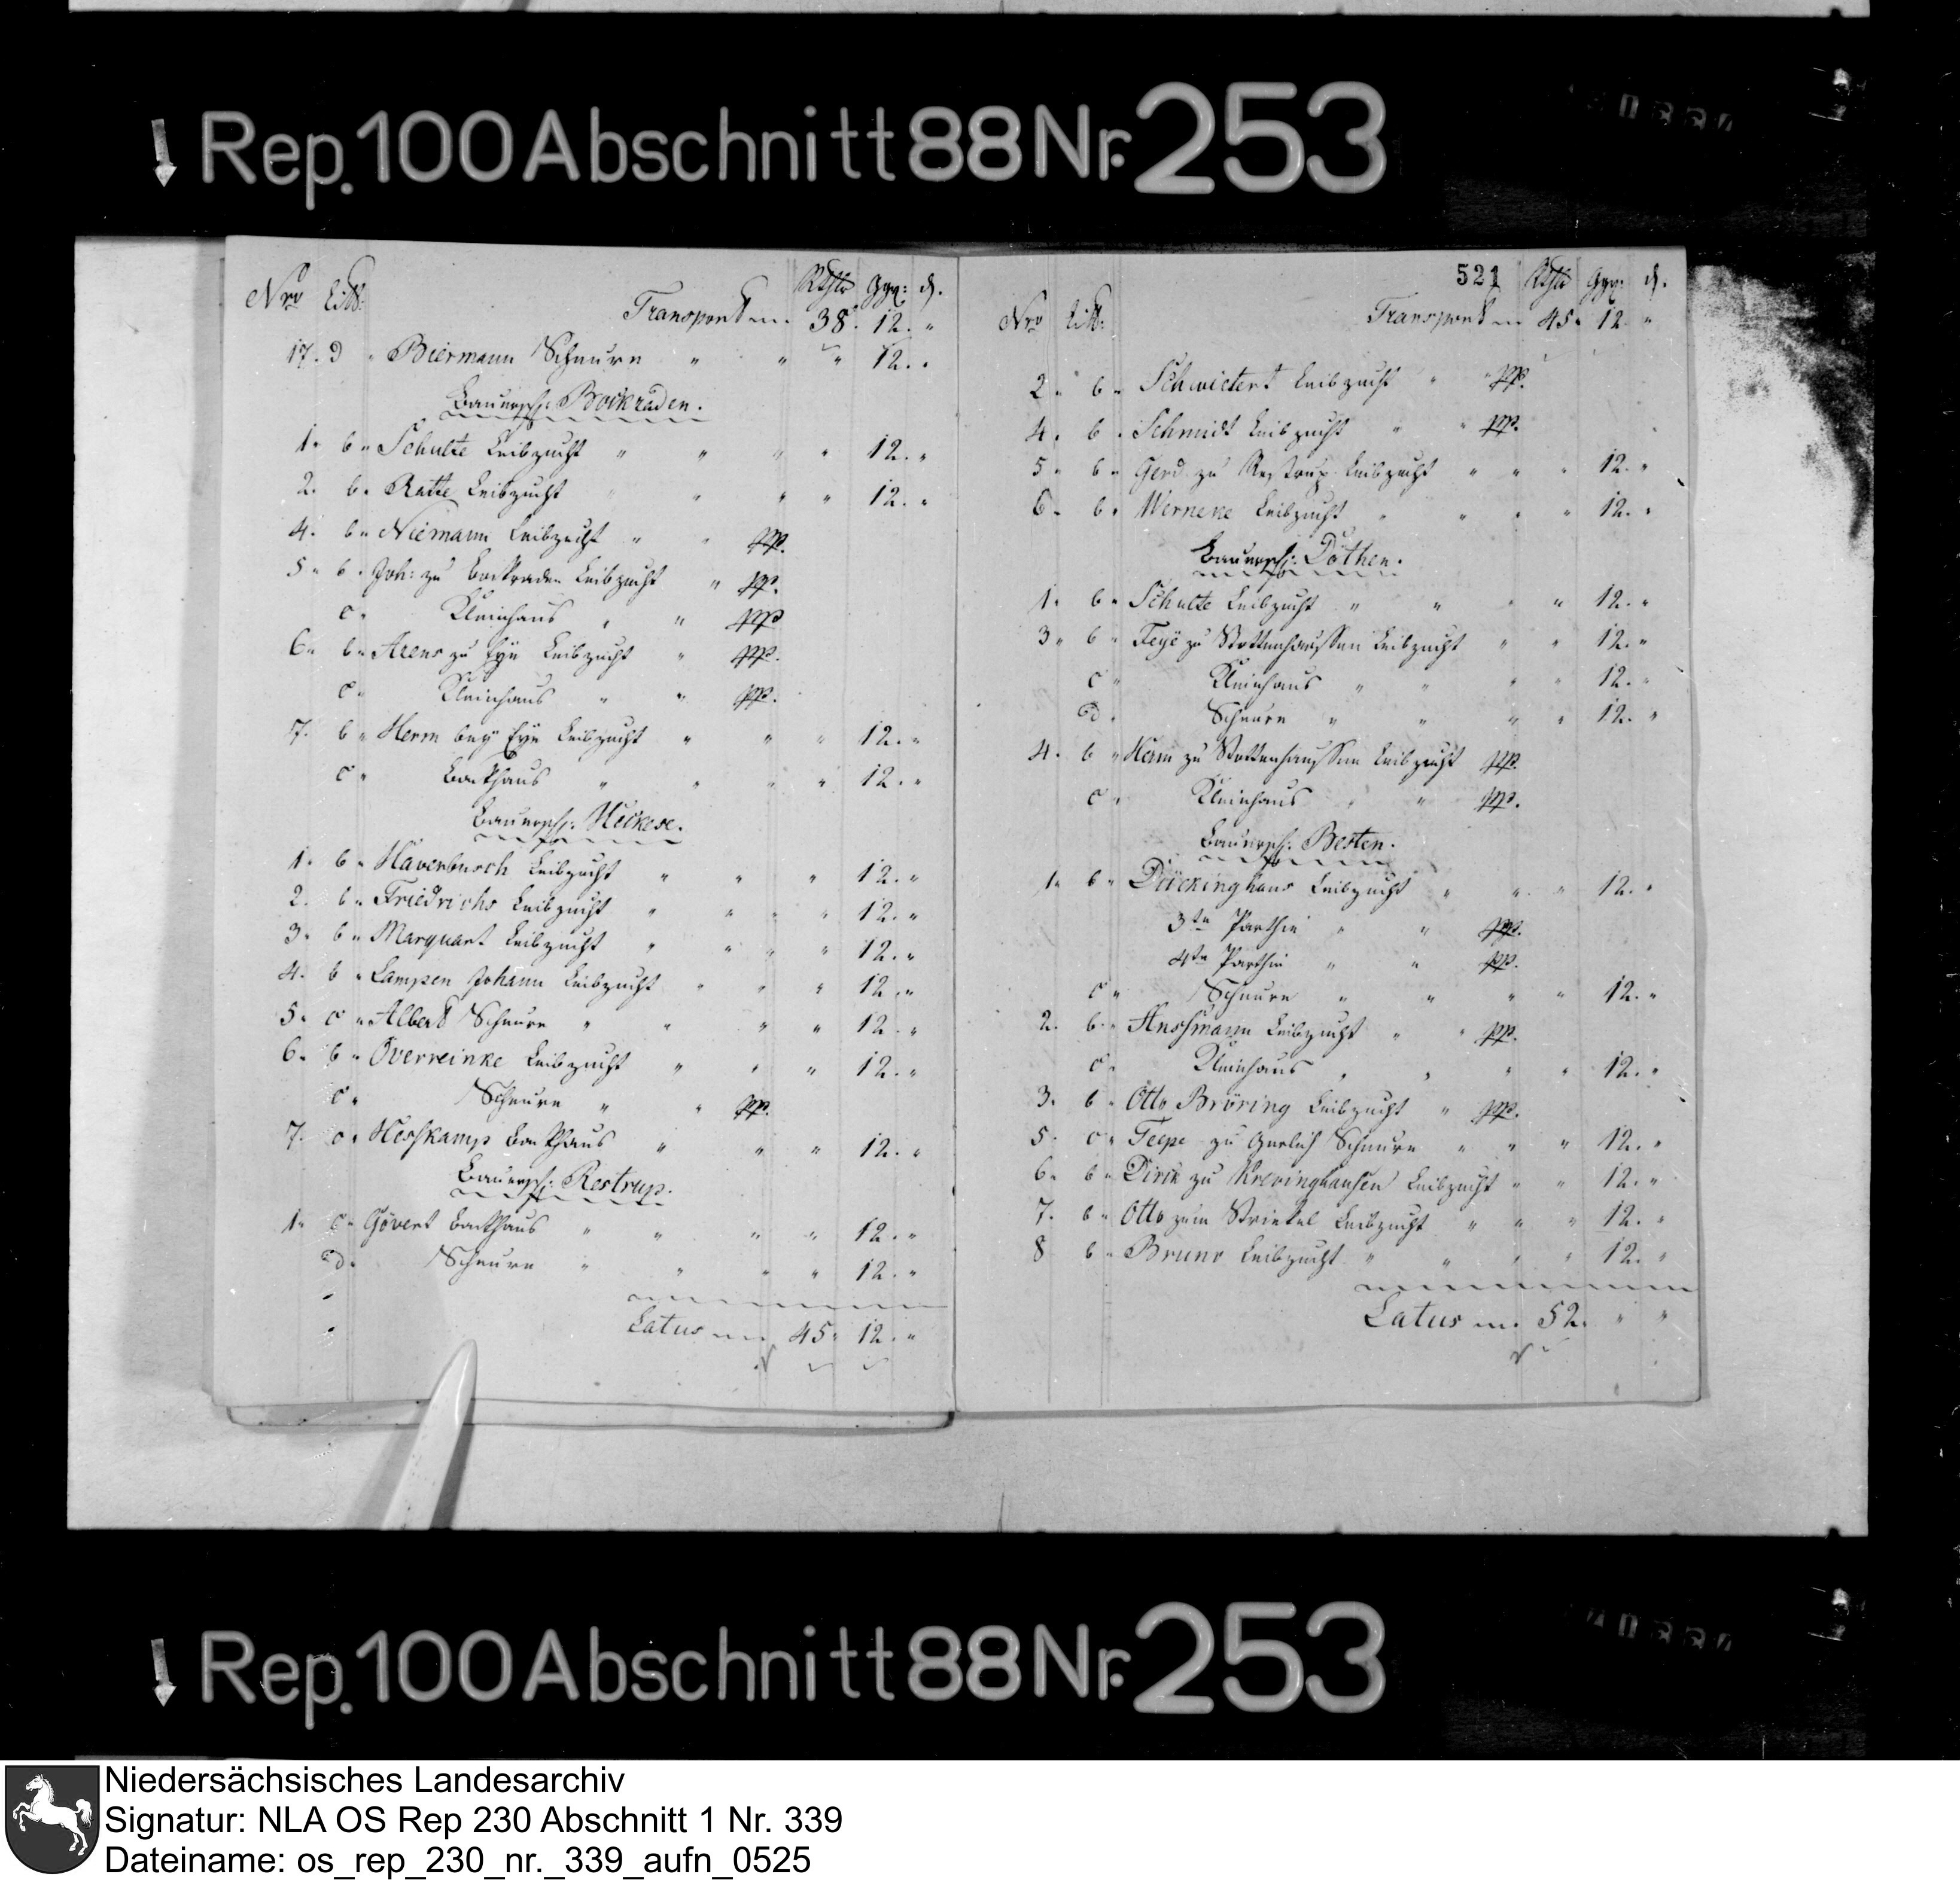 Rep. 100 Abschnitt 88 Nr. 253
Nro Litt: Rthlr Ggr: d.
Transport 38. 12. "
17. d " Biermann Scheure " " " " 12. "
Bauersch: Bockraden.
1. b " Schulte Leibzucht " " " " 12. "
2. b " Ratte Leibzucht " " " " 12. "
4. b " Niemann Leibzucht " " pp.
5 " b " Joh: zu Bockraden Leibzucht " pp.
c " Kleinhaus " " pp
6 " b " Arens zu Eye Leibzucht " pp.
c " Kleinhaus " " pp.
7. b " Herm bey Eye Leibzucht " " " 12. "
c " Backhaus " " " " 12. "
Bauersch: Heckese.
1. b " Haverbusch Leibzucht " " " 12. "
2. b " Friedrichs Leibzucht " " " " 12. "
3. b " Marquart Leibzucht " " " " 12. "
4. b " Lampen Johann Leibzucht " " " 12. "
5. c " Albert Scheure " " " " 12. "
6. b " Overreinke Leibzucht " " " 12. "
c " Scheure " " pp.
7. c " Heskamp Backhaus " " " 12. "
Bauersch: Restrup.
1. c " Gövert Backhaus " " " " 12. "
d. Scheure " " " " 12. "
Latus 45. 12. "
521
Nro Litt: Rthlr Ggr: d.
Transport 45. 12. "
2. b " Schwietert Leibzucht " " pp.
4. b " Schmidt Leibzucht " " pp.
5 " b " Gerd zu Restrup Leibzucht " " " 12. "
6. b " Werneke Leibzucht " " " " 12. "
Bauersch: Dothen.
1. b " Schulte Leibzucht " " " " 12. "
3. b " Feye zu Stottenhaussen Leibzucht " " 12. "
c " Kleinhaus " " " " 12. "
d. Scheure " " " " 12. "
4. b " Herm zu Stottenhaussen Leibzucht pp.
c " Kleinhaus " " pp.
Bauersch: Besten.
1. b " Döckinghaus Leibzucht " " " 12. "
3te Parthie " " pp.
4te Parthie " " pp.
c " Scheure " " " " 12. "
2. b " Ansmann Leibzucht " " pp.
c " Kleinhaus " " " " 12. "
3. b " Otto Bröring Leibzucht " pp.
5. c " Teepe zu Scheure " " " 12. "
6. b " Dirck zu Krevinghausen Leibzucht " " 12. "
7. b " Otto zum Striekel Leibzucht " " " 12. "
8 b " Bruns Leibzucht " " " " 12. "
Latus 52. " "
Rep. 100 Abschnitt 88 Nr. 253
Niedersächsisches Landesarchiv
Signatur: NLA OS Rep 230 Abschnitt 1 Nr. 339
Dateiname: os_rep_230_nr._339_aufn_0525